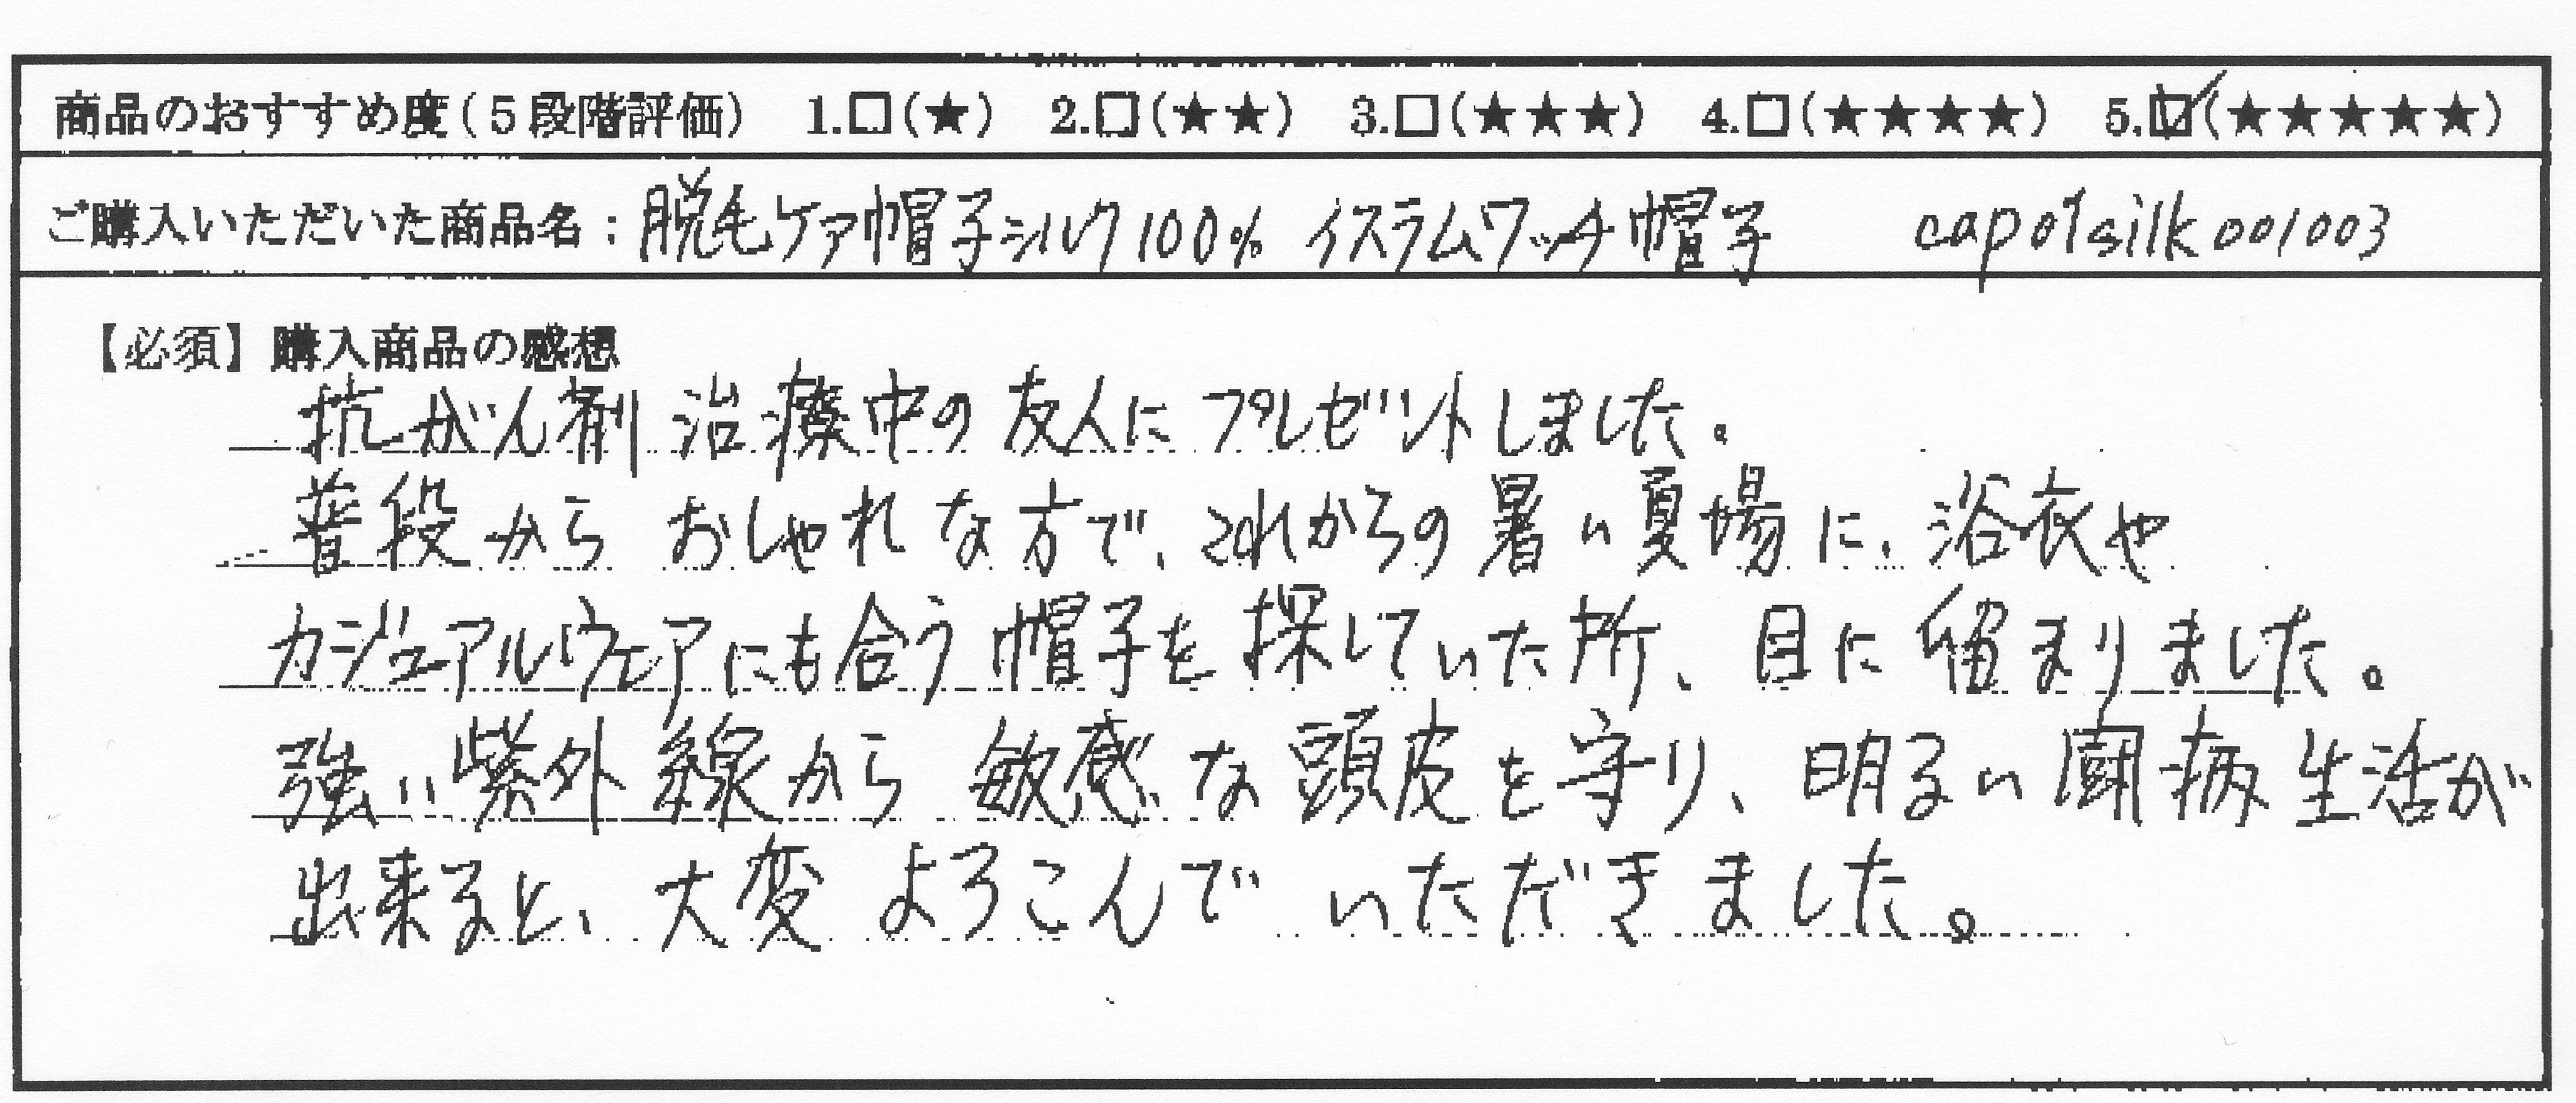 商品のおすすめ度(5段階評価) 1.□(★) 2.□(★★) 3.□(★★★) 4.□(★★★★) 5.☑(★★★★★)
ご購入いただいた商品名:脱毛ケア帽子シルク100% イスラムワッチ帽子 capo1silk001003
【必須】購入商品の感想
抗がん剤治療中の友人にプレゼントしました。
普段からおしゃれな方で、これからの暑い夏場に、浴衣や
カジュアルウェアにも合う帽子を探していた所、目に留まりました。
強い紫外線から敏感な頭皮を守り、明るい闘病生活が
出来ると、大変よろこんでいただきました。